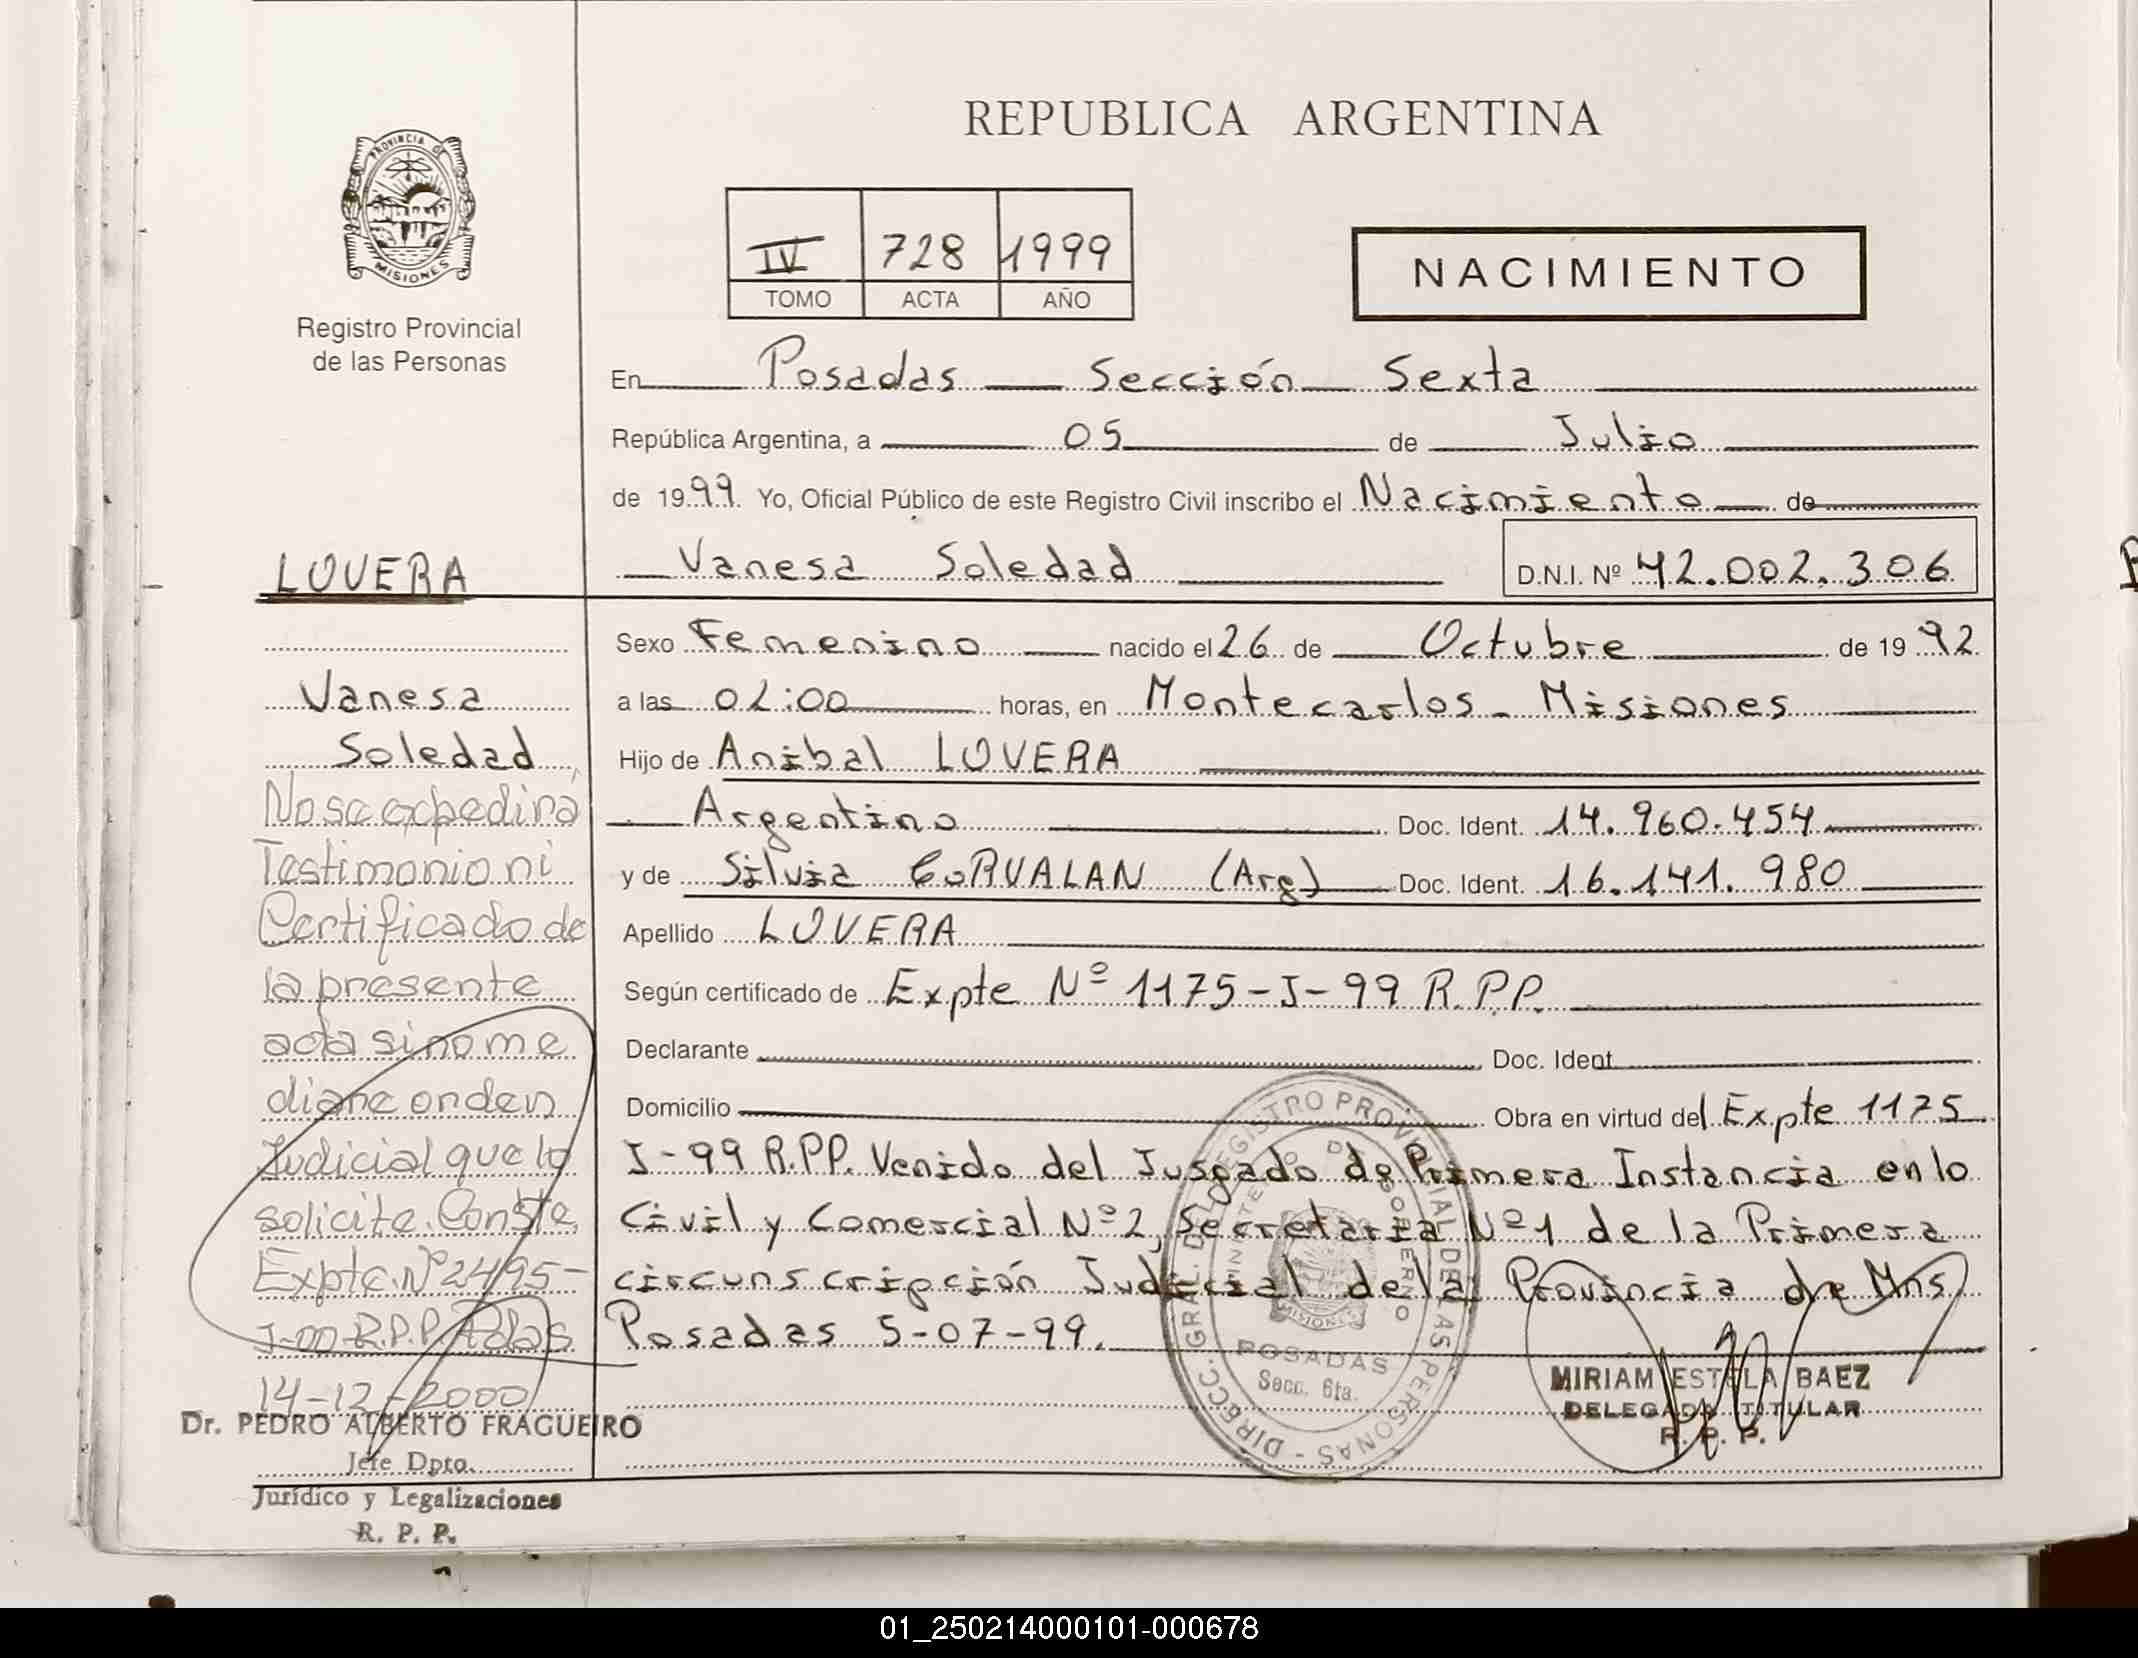 REPUBLICA ARGENTINA
PROVINCIA DE
MISIONES
Registro Provincial
de las Personas
IV 728 1999
TOMO ACTA AÑO
NACIMIENTO
En Posadas Sección Sexta
República Argentina, a 05 de Julio
de 1999. Yo, Oficial Público de este Registro Civil inscribo el Nacimiento de
Vanesa Soledad D.N.I. Nº 42.002.306
Sexo Femenino nacido el 26 de Octubre de 1992.
a las 02:00 horas, en Montecarlos - Misiones
Hijo de Anibal LOVERA
Argentino Doc. Ident. 14.960.454
y de Silvia CORVALAN (Arg) Doc. Ident. 16.141.980
Apellido LOVERA
Según certificado de Expte Nº 1175-J-99 R.P.P.
Declarante Doc. Ident.
Domicilio Obra en virtud del Expte 1175
J-99 R.P.P. Venido del Jusgado de Primera Instancia en lo
Civil y Comercial Nº2, Secretaria Nº1 de la Primera
circunscripción Judicial de la Provincia de Mns
Posadas 5-07-99.
DIRECC. GRAL. DEL REGISTRO PROVINCIAL DE LAS PERSONAS -
MINISTERIO DE GOBIERNO
MISIONES
POSADAS
Secc. 6ta.
MIRIAM ESTELA BAEZ
DELEGADA TITULAR
R. P. P.
LOVERA
Vanesa
Soledad
No se expedirá
Testimonio ni
Certificado de
la presente
acta sino me
diante orden
Judicial que lo
solicite. Conste,
Expte. Nº 2495-
J-00-R.P.P. Pdas
14-12-2000
Dr. PEDRO ALBERTO FRAGUEIRO
Jefe Dpto.
Jurídico y Legalizaciones
R. P. P.
01_250214000101-000678